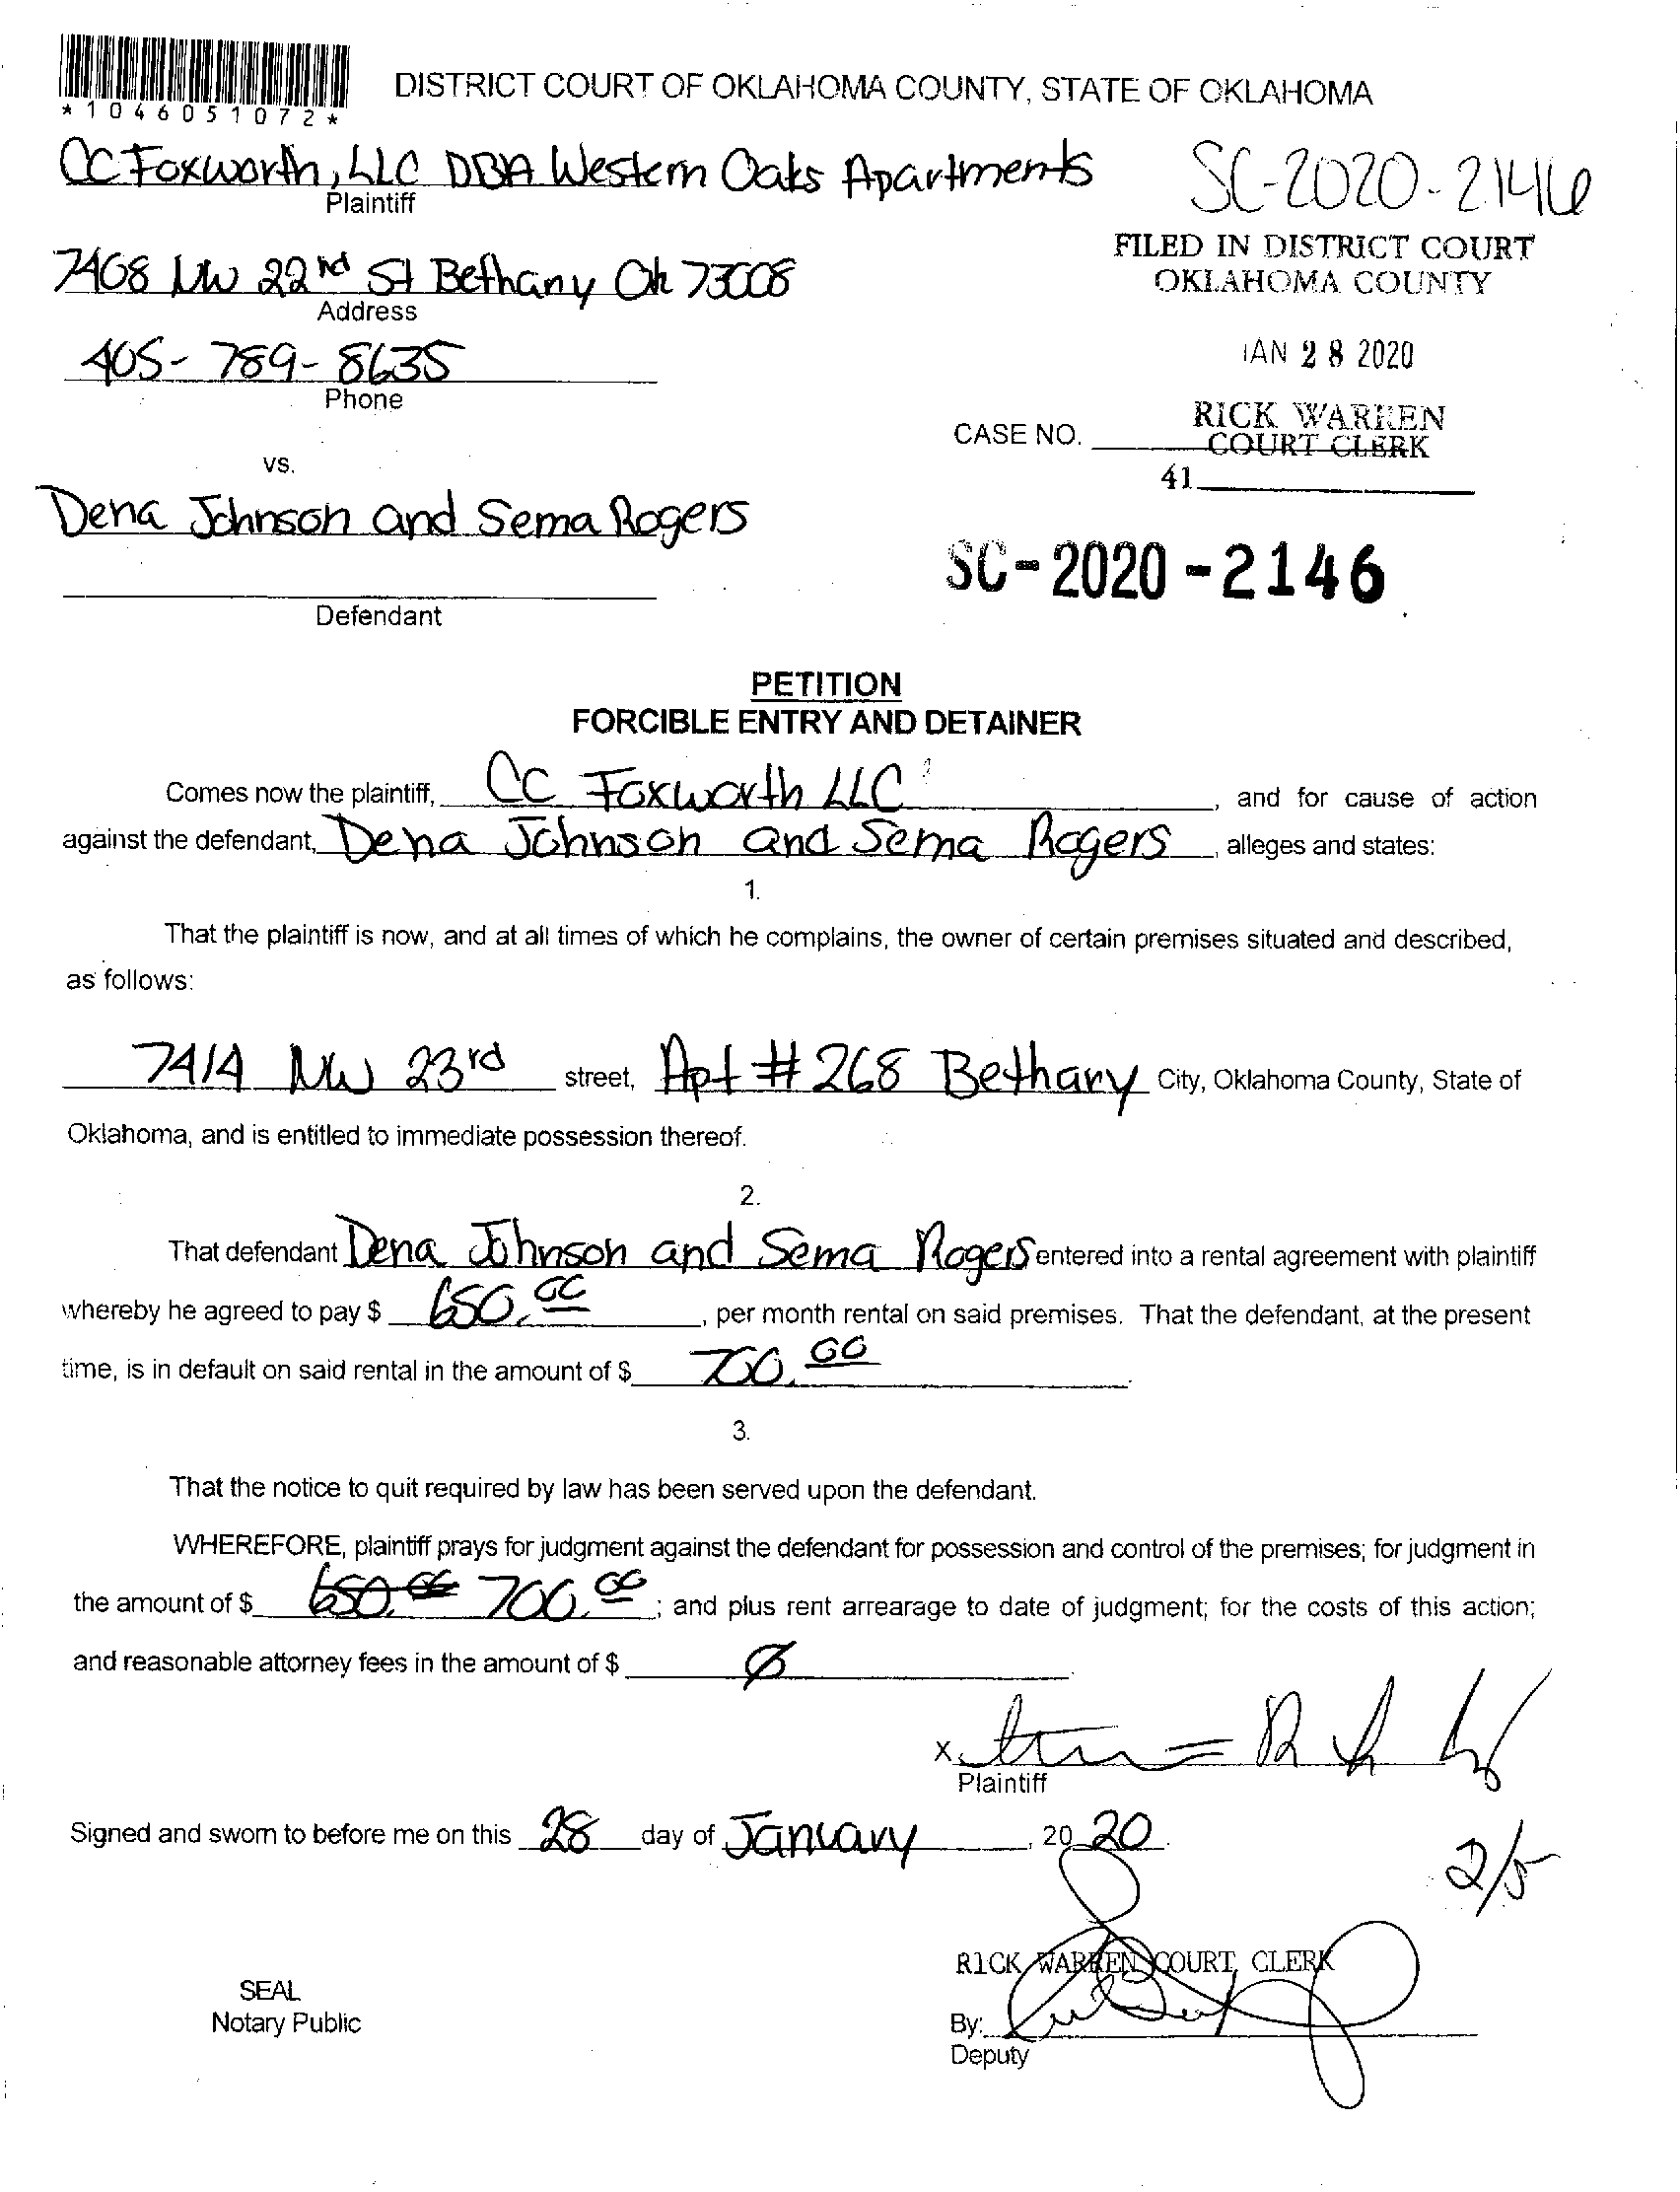 DISTRICT COURT OF OKLAHOMA COUNTY, STATE OF OKLAHOMA
*1046051072*
CC Foxworth, LLC DBA Western Oaks Apartments
Plaintiff
SC-2020-2146
7408 NW 22nd St Bethany Ok 73008
Address
FILED IN DISTRICT COURT
OKLAHOMA COUNTY
405-789-8635
Phone
JAN 28 2020
RICK WARREN
COURT CLERK
CASE NO.
41
vs.
Dena Johnson and Sema Rogers
Defendant
SC-2020-2146
PETITION
FORCIBLE ENTRY AND DETAINER
Comes now the plaintiff, CC Foxworth LLC, and for cause of action
against the defendant, Dena Johnson and Sema Rogers, alleges and states:
1.
That the plaintiff is now, and at all times of which he complains, the owner of certain premises situated and described,
as follows:
7414 NW 23rd street, Apt # 268 Bethany City, Oklahoma County, State of
Oklahoma, and is entitled to immediate possession thereof.
2.
That defendant Dena Johnson and Sema Rogers entered into a rental agreement with plaintiff
whereby he agreed to pay $ 650.00, per month rental on said premises. That the defendant, at the present
time, is in default on said rental in the amount of $ 700.00.
3.
That the notice to quit required by law has been served upon the defendant.
WHEREFORE, plaintiff prays for judgment against the defendant for possession and control of the premises; for judgment in
the amount of $ 650.00 700.00; and plus rent arrearage to date of judgment; for the costs of this action;
and reasonable attorney fees in the amount of $ Ø.
X
Plaintiff
Signed and sworn to before me on this 28 day of January, 20 20.
2/5
RICK WARREN COURT CLERK
SEAL
Notary Public
By:
Deputy